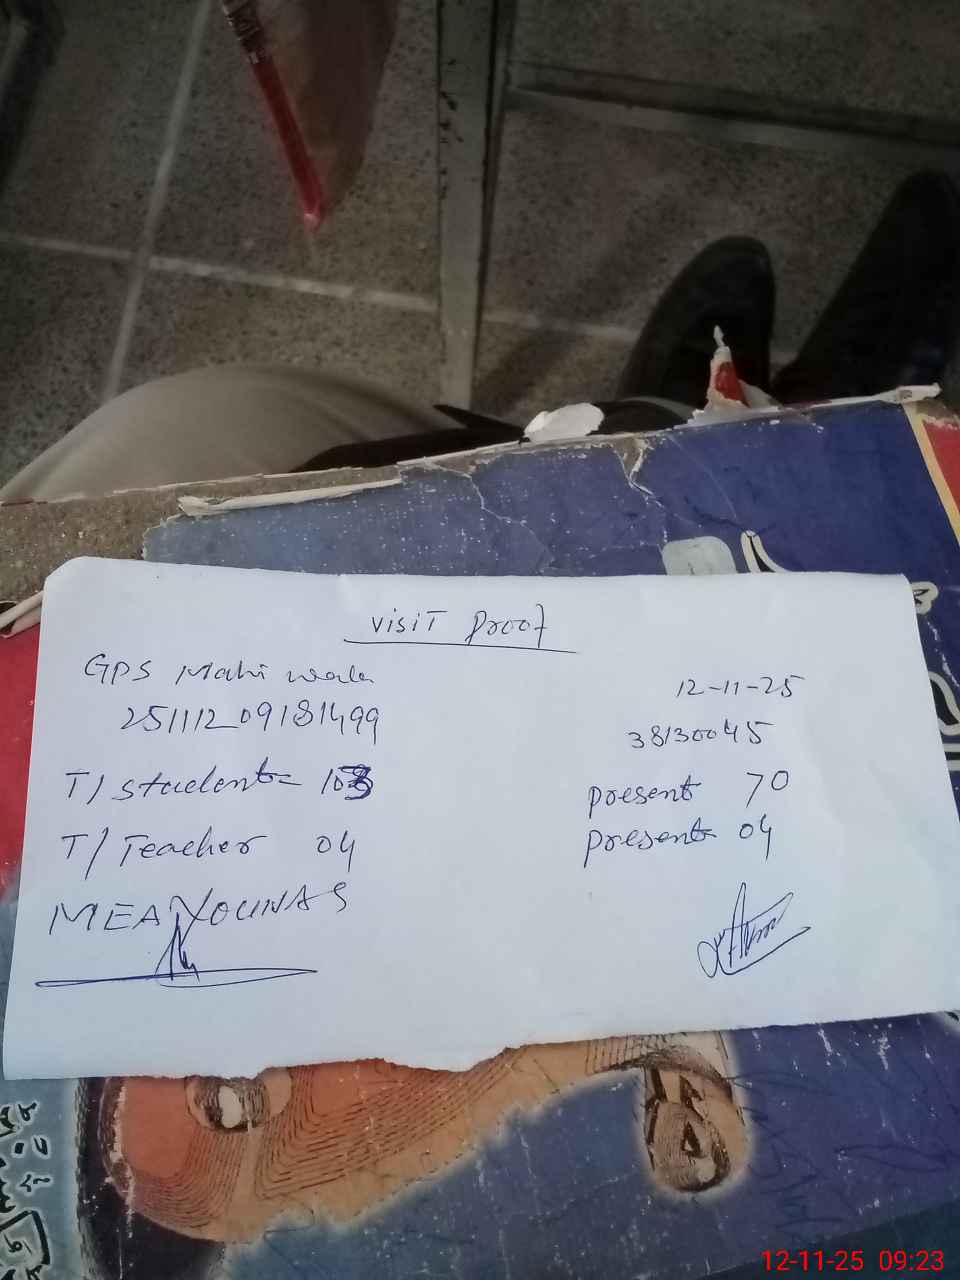 Visit Proof
GPS Mahi wala
12-11-25
251112 09181499
38130045
T/Student= 103
present 70
T/Teacher 04
present 04
MEA YOUNAS
12-11-25 09:23